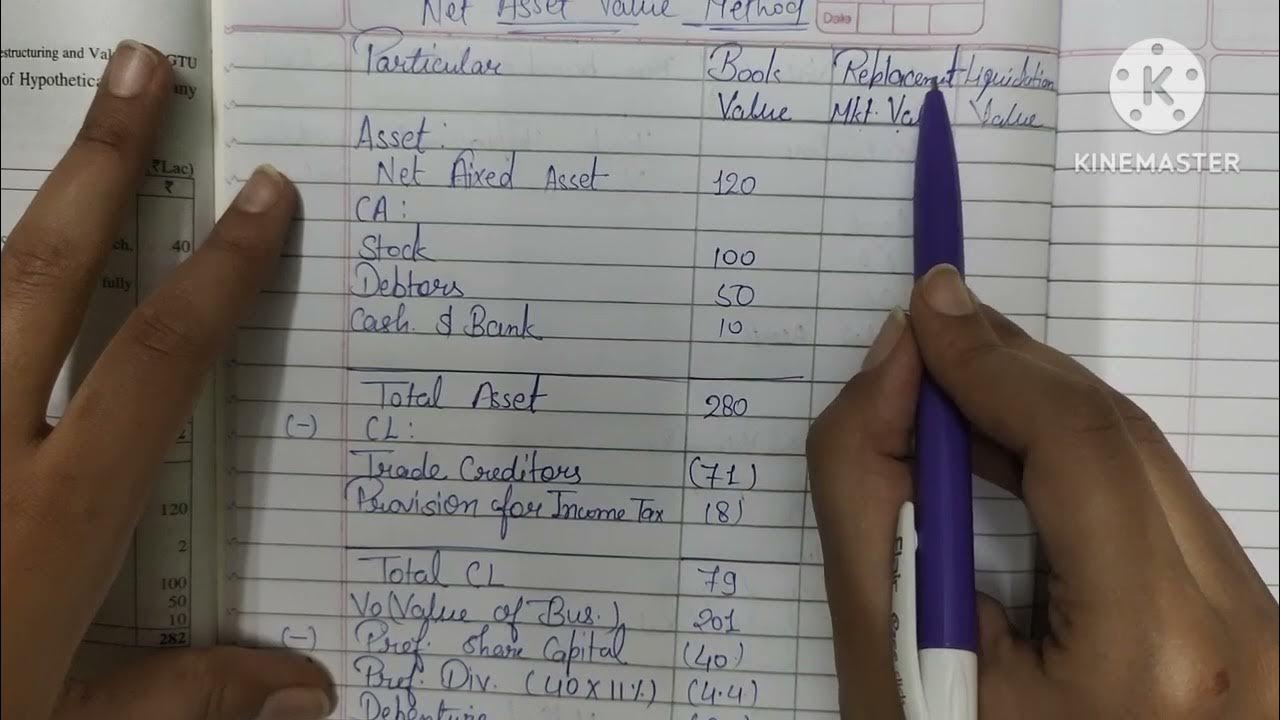 Net Asset Value Method
Date
estructuring and Val GTU
of Hypothetica any
₹Lac)
₹
ch. 40
fully
2
120
2
100
50
10
282
Particular Book Replacement Liquidation
Value Mkt. Val Value
Asset:
Net Fixed Asset 120
CA:
Stock 100
Debtors 50
Cash & Bank 10
Total Asset 280
(-) CL:
Trade Creditors (71)
Provision for Income Tax (8)
Total CL 79
Vo(Value of Bus.) 201
(-) Pref. Share Capital (40)
Pref. Div. (40 x 11%) (4.4)
Debenture
K
KINEMASTER